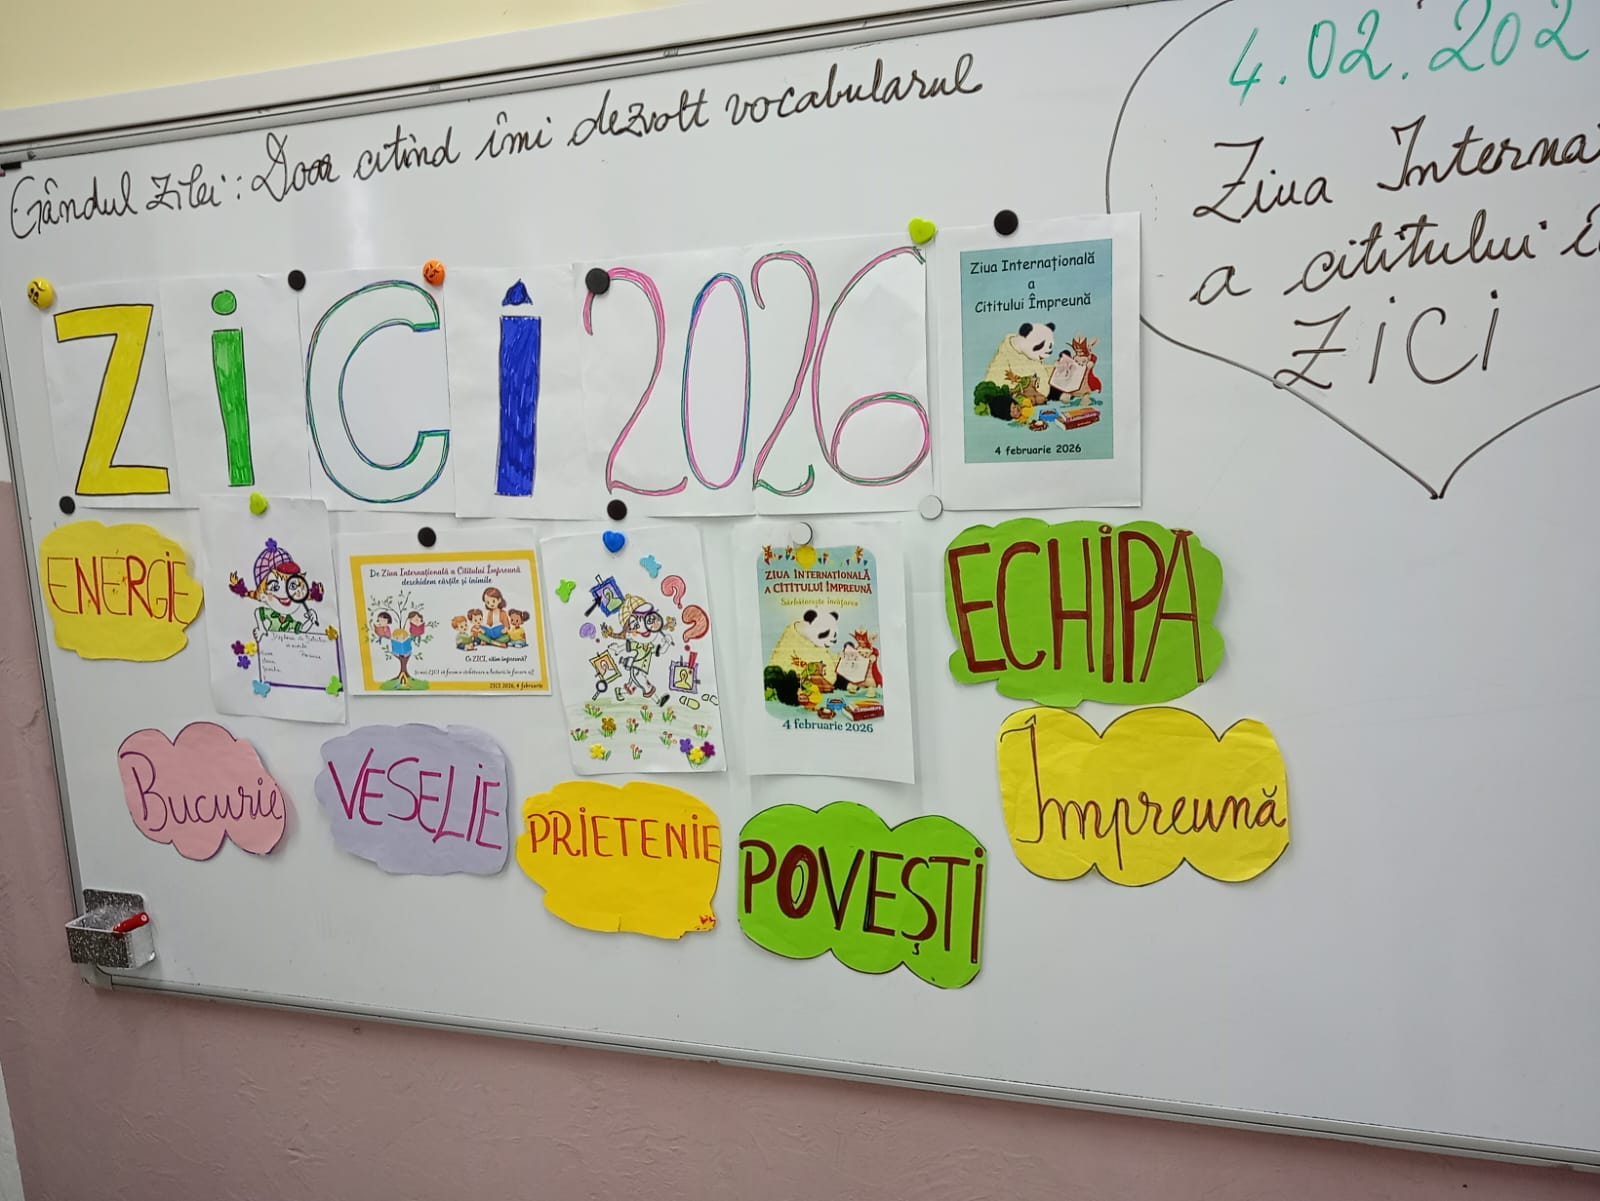 Gândul zilei: Doar citind îmi dezvolt vocabularul
4.02.202
Ziua Interna
a cititului
ZiCi
ZiCÎ 2026
Ziua Internațională
a
Cititului Împreună
4 februarie 2026
ENERGIE
De Ziua Internațională a Cititului Împreună
deschidem cărțile și inimile
Ce ZICI, citim împreună?
ZICI 2026, 4 februarie
ZIUA INTERNAȚIONALĂ
A CITITULUI ÎMPREUNĂ
Sărbătorește învățarea
4 februarie 2026
ECHIPA
Bucurie
VESELIE
PRIETENIE
POVEȘTI
Împreună